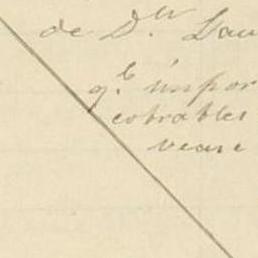 de D.ⁿ Lau
q.ᵉ impor
cobrables
vease